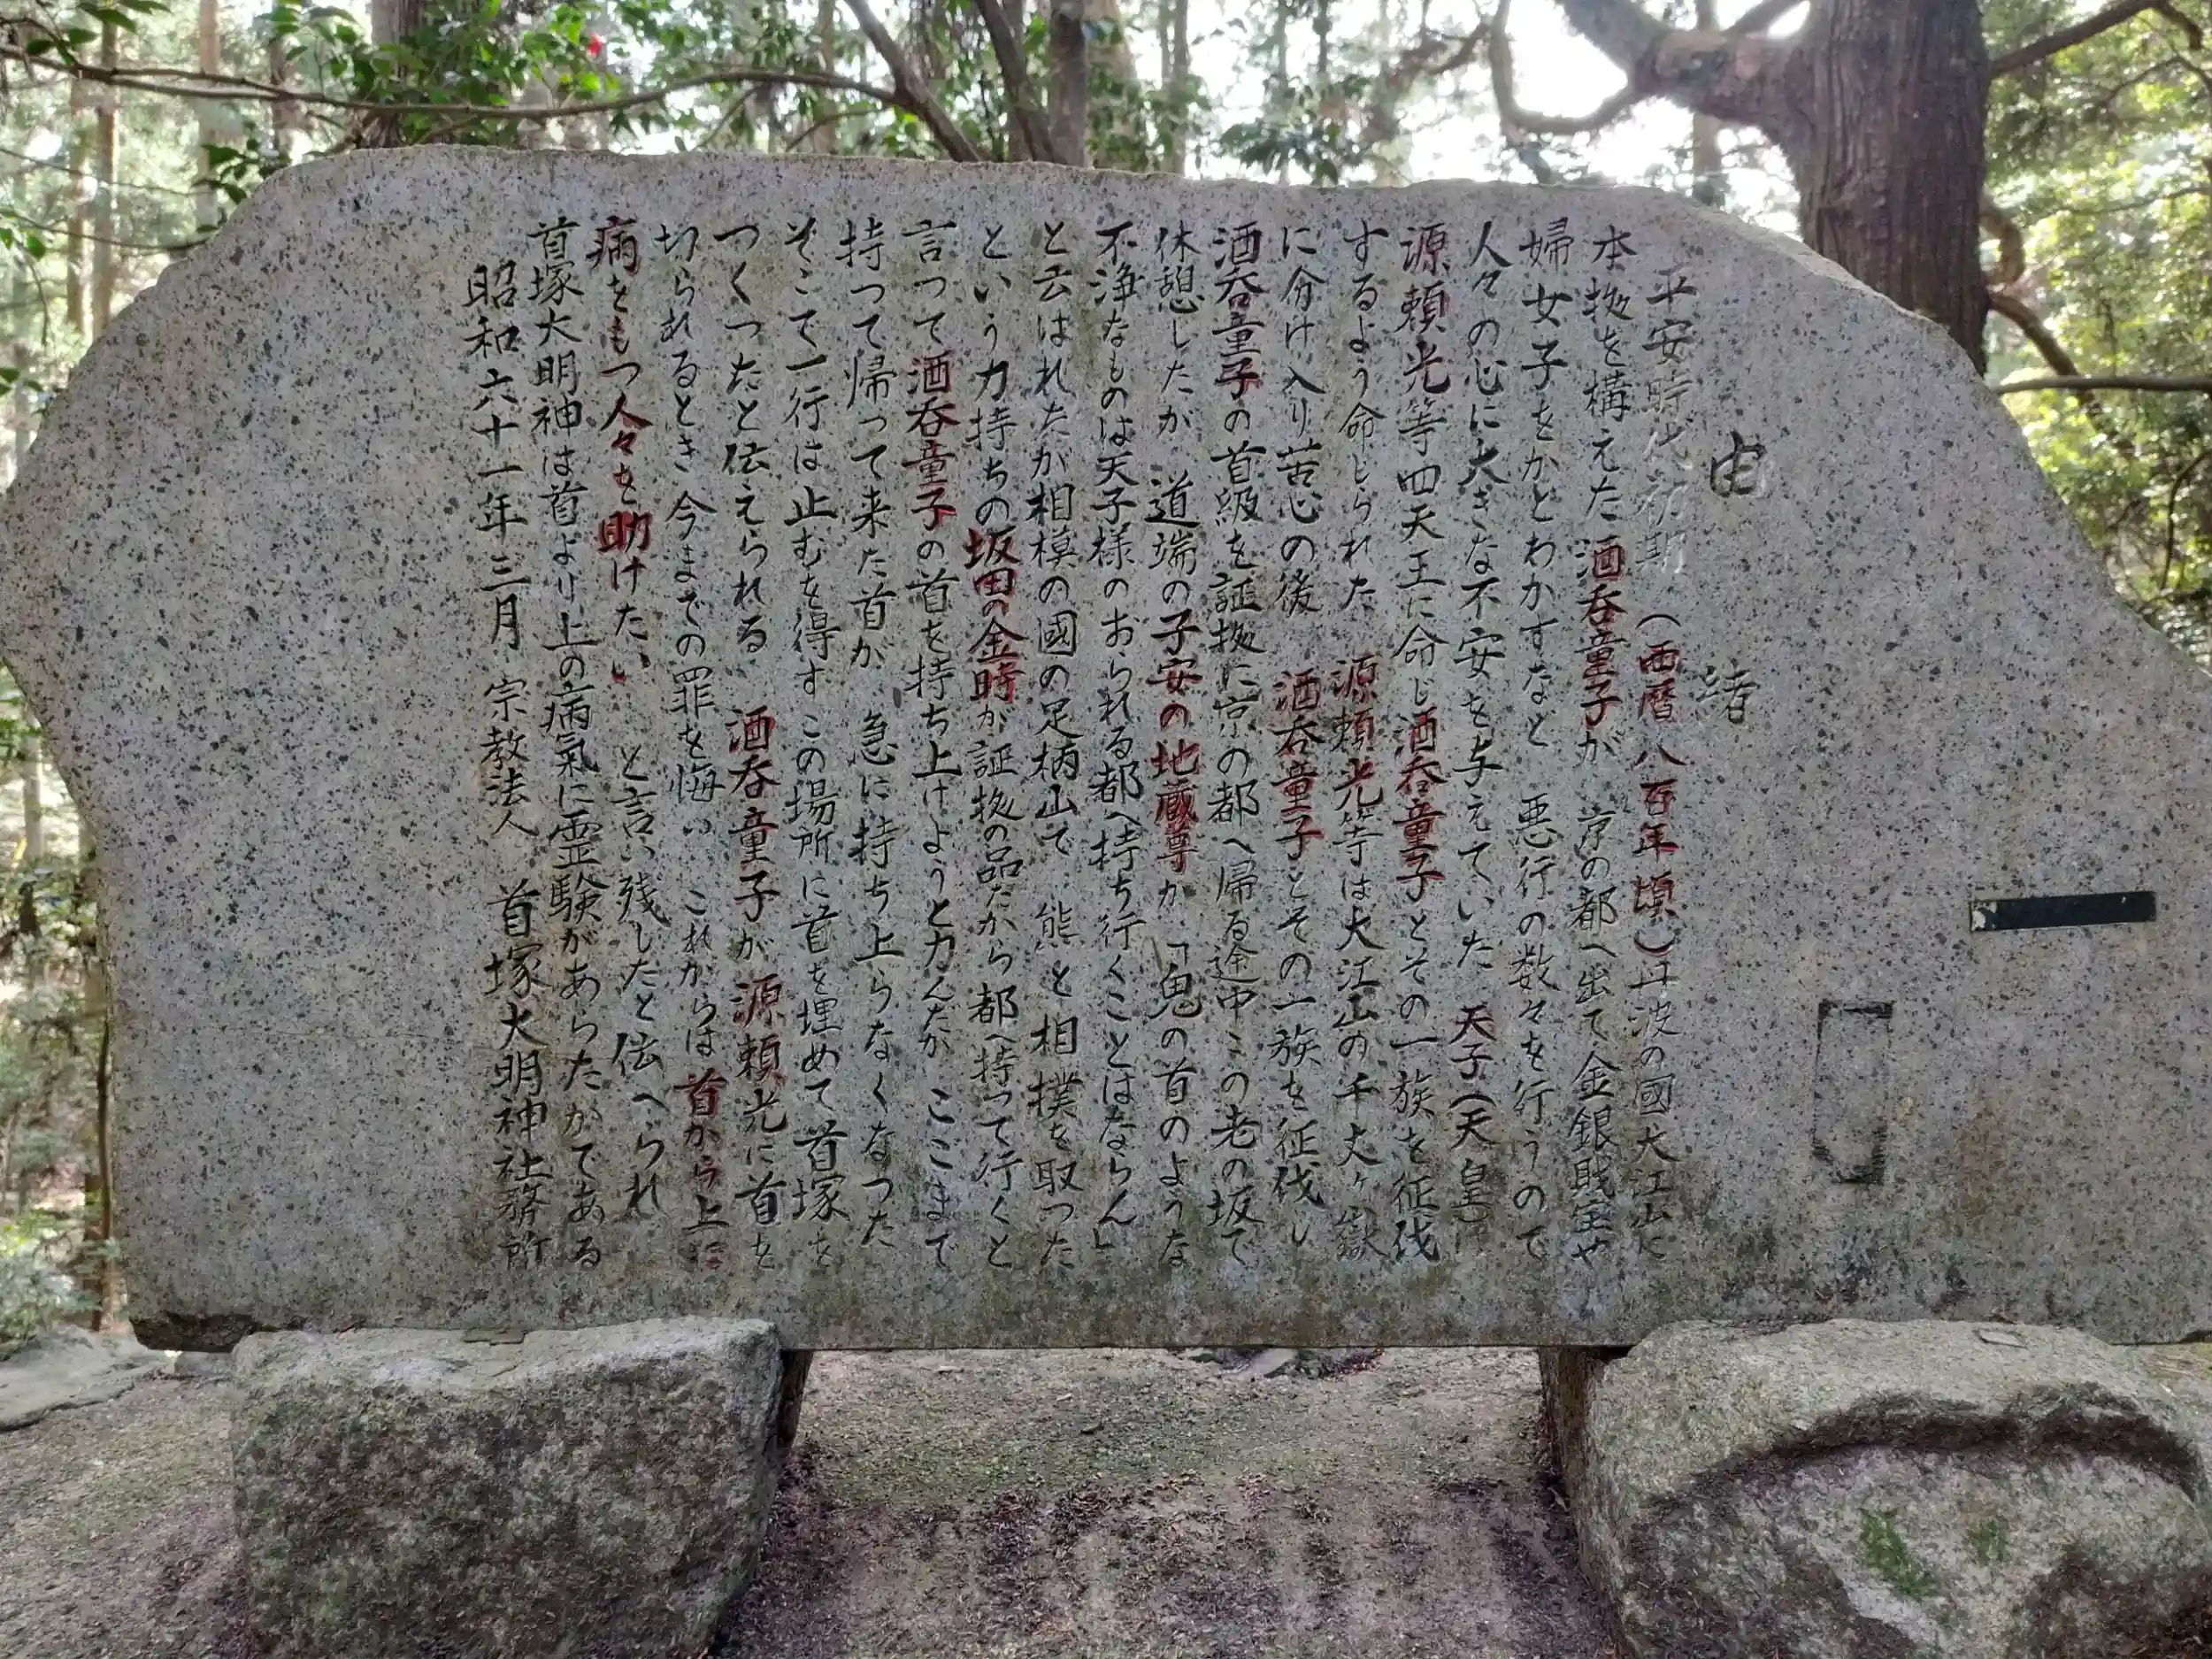 由緒
平安時代初期（西暦八百年頃）丹波の國大江山に
本拠を構えた酒呑童子が　京の都へ出て金銀財宝や
婦女子をかとわかすなと　悪行の数々を行うので
人々の心に大きな不安を与えていた　天子（天皇）は
源頼光等四天王に命じ酒呑童子とその一族を征伐
するよう命じられた　源頼光等は大江山の千丈ヶ嶽
に分け入り苦心の後　酒呑童子とその一族を征伐し
酒呑童子の首級を証拠に京の都へ帰る途中この老の坂で
休憩したが　道端の子安の地蔵尊が「鬼の首のような
不浄なものは天子様のおられる都へ持ち行くことはならん」
と云はれたが相模の國の足柄山で　熊と相撲を取った
という力持ちの坂田の金時が証拠の品だから都へ持って行くと
言って酒呑童子の首を持ち上げようと力んだが　ここまで
持って帰って来た首が　急に持ち上らなくなった
そこで一行は止むを得ずこの場所に首を埋めて首塚を
つくったと伝えられる　酒呑童子が源頼光に首を
切られるとき今までの罪を悔い　これからは首から上に
病をもつ人々を助けたい　と言い残したと伝へられ
首塚大明神は首より上の病氣に霊験があらたかである
昭和六十一年三月　宗教法人　首塚大明神社務所